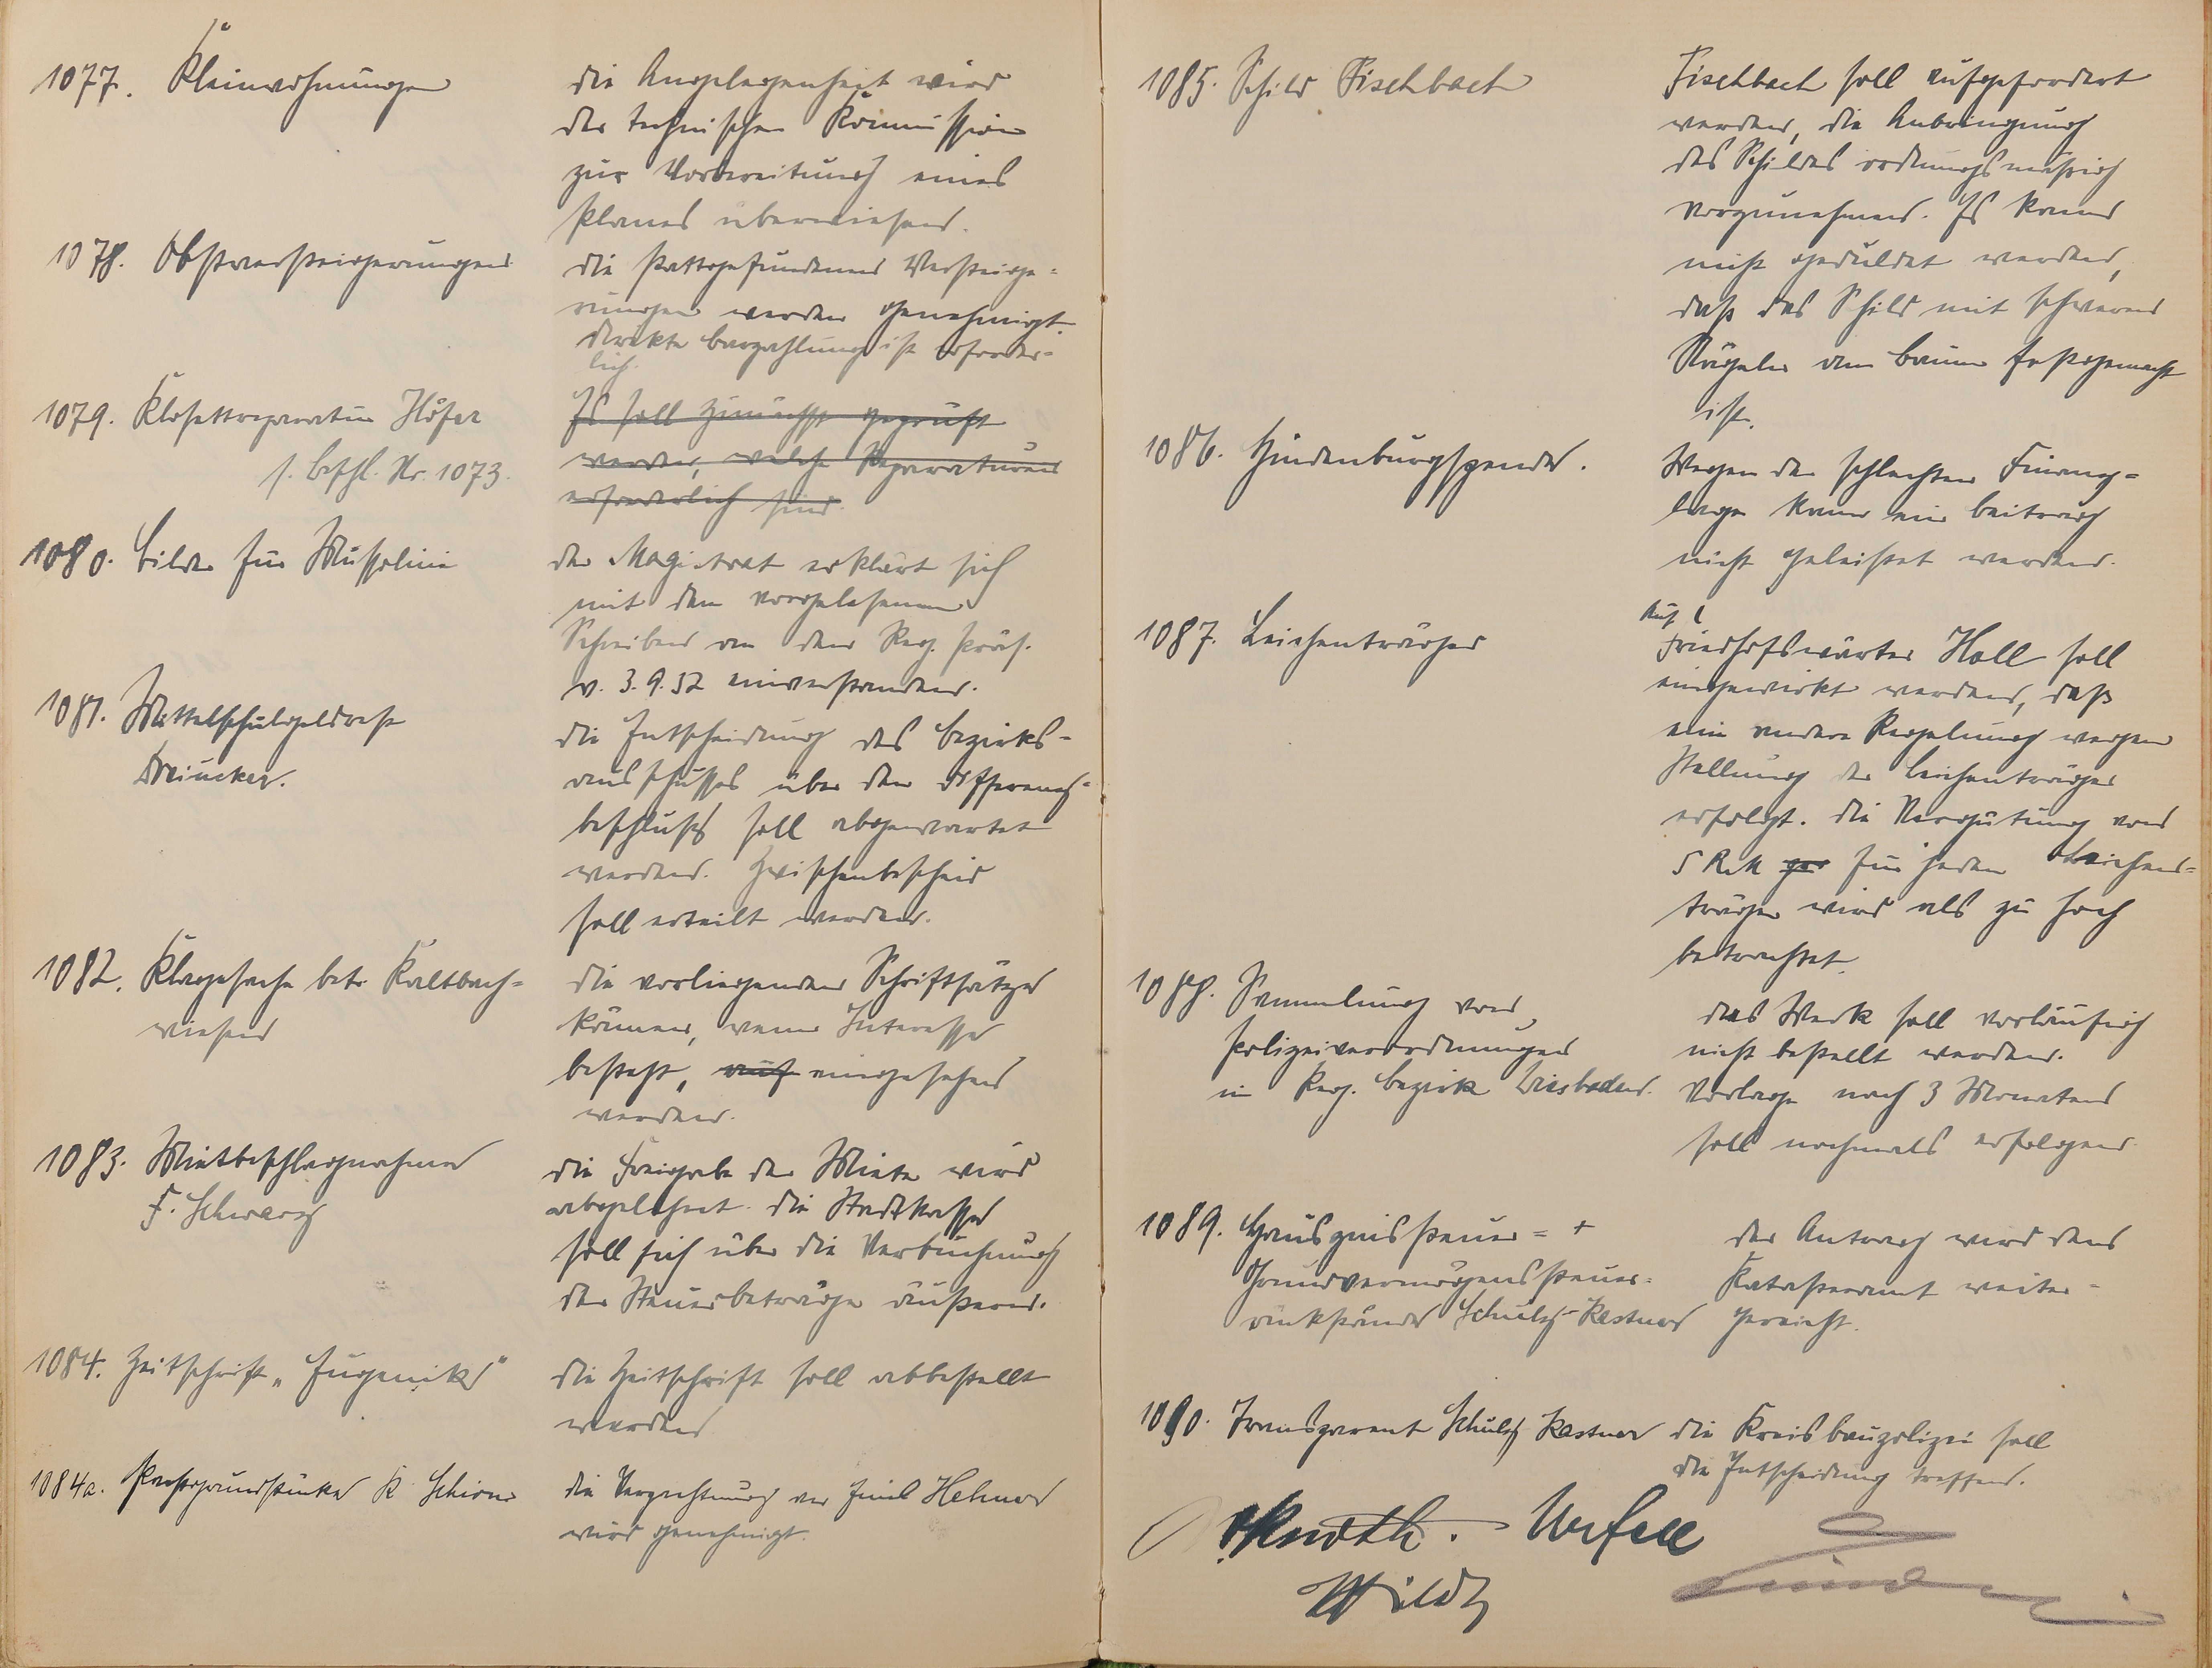 1077. Kleinwohnungen
die Angelegenheit wird
der technischen Kommission
zur Vorbereitung eines
Planes überwiesen.
1078. Obstversteigerungen
die stattgefundenen Versteige-
rungen werden genehmigt.
direkte Barzahlung ist erforder-
lich.
1079. Klosettreparatur Höfer
s. Beschl. Nr. 1073.
Es soll zunächst geprüft
werden, welche Reparaturen
erforderlich sind.
1080. Bilder für Mussolini
der Magistrat erklärt sich
mit dem vorgelesenen
Schreiben an den Reg. Präs.
v. 3.9.32 einverstanden.
1081. Mittelschulgeldrest
Dreiucker.
die Entscheidung des Bezirks-
ausschusses über den Differenz-
beschluß soll abgewartet
werden. Zwischenbescheid
soll erteilt werden.
1082. Klagesache betr. Kaltbach-
wiesen
die vorliegenden Schriftsätze
können, wenn Interesse
besteht, auf eingesehen
werden.
1083. Mietbeschlagnahme
F. Schwarz
die Freigabe der Miete wird
abgelehnt. die Stadtkasse
soll sich über die Verbuchung
der Steuerbeträge äußern.
1084. Zeitschrift „Eugenik"
die Zeitschrift soll abbestellt
werden
1084a. Pachtgrundstücke K. Schirm
die Verpachtung an Emil Helmer
wird genehmigt.
1085. Schild Fischbach
Fischbach soll aufgefordert
werden, die Anbringung
des Schildes ordnungsmäßig
vorzunehmen. Es kann
nicht geduldet werden,
daß das Schild mit schweren
Nägeln am Baum festgemacht
ist.
1086. Hindenburgspende.
Wegen der schlechten Finanz-
lage kann ein Beitrag
nicht geleistet werden.
1087. Leichenträger
Auf
Friedhofswärter Holl soll
eingewirkt werden, daß
ein andere Regelung wegen
Stellung der Leichenträger
erfolgt. die Vergütung von
5 RM für jeden Leichen-
träger wird als zu hoch
betrachtet.
1088. Sammlung von
Polizeiverordnungen
im Reg. Bezirk Wiesbaden.
das Werk soll vorläufig
nicht bestellt werden.
Vorlage nach 3 Monaten
soll nochmals erfolgen
1089. Hauszinssteuer- +
Grundvermögenssteuer-
rückstände Schulz-Kastner
der Antrag wird dem
Katasteramt weiter-
gereicht.
1090. Transparent Schulz Kastner
die Kreisbaupolizei soll
die Entscheidung treffen.